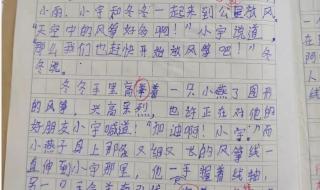 小雨、小宇和冬冬一起来到公园放风
"天空中的风筝好多啊!"小宇说道,
那么我们也赶快开始放风筝吧!"冬
冬说。
冬冬手里高举着一只小燕子图形
的风筝,兴高采烈,也许正在对他的
好朋友小宇喊道:"加油啊!小宇"而
小燕子身上那条又细又长的风筝线一
直伸到小宇那里,他一手握着线轴,